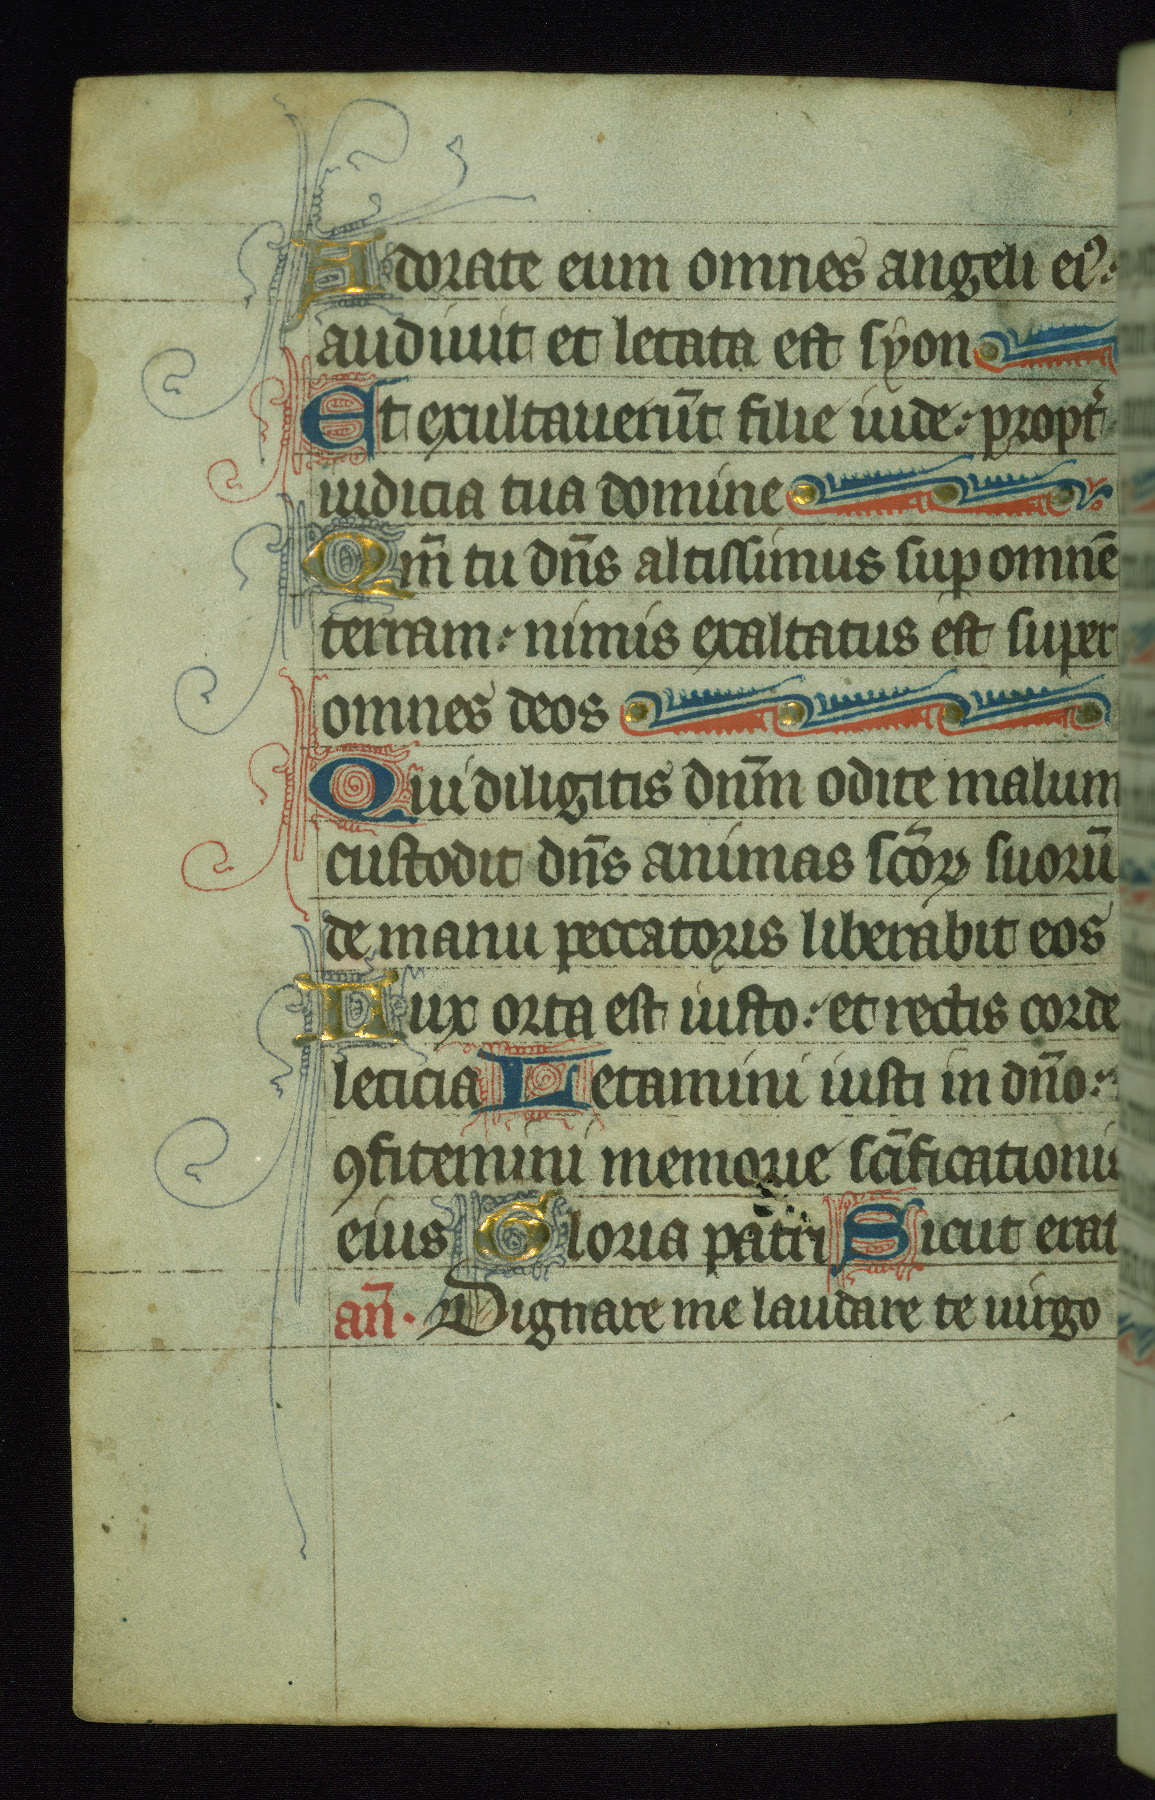 Adorate eum omnes angeli eiꝰ:
audiuit et letata est syon
Et exultauerūt filie iude: propt̄
iudicia tua domine
Qm̄ tu dn̄s altissimus sup omnē
terram: nimis exaltatus est super
omnes deos
Qui diligitis dnm̄ odite malum
custodit dn̄s animas scōꝝ suorū
de manu peccatoris liberabit eos
Lux orta est iusto: et rectis corde
leticia Letamini iusti in dn̄o:
ꝯfitemini memorie scīficationis
eius Gloria patri Sicut erat
an̄. Dignare me laudare te uirgo